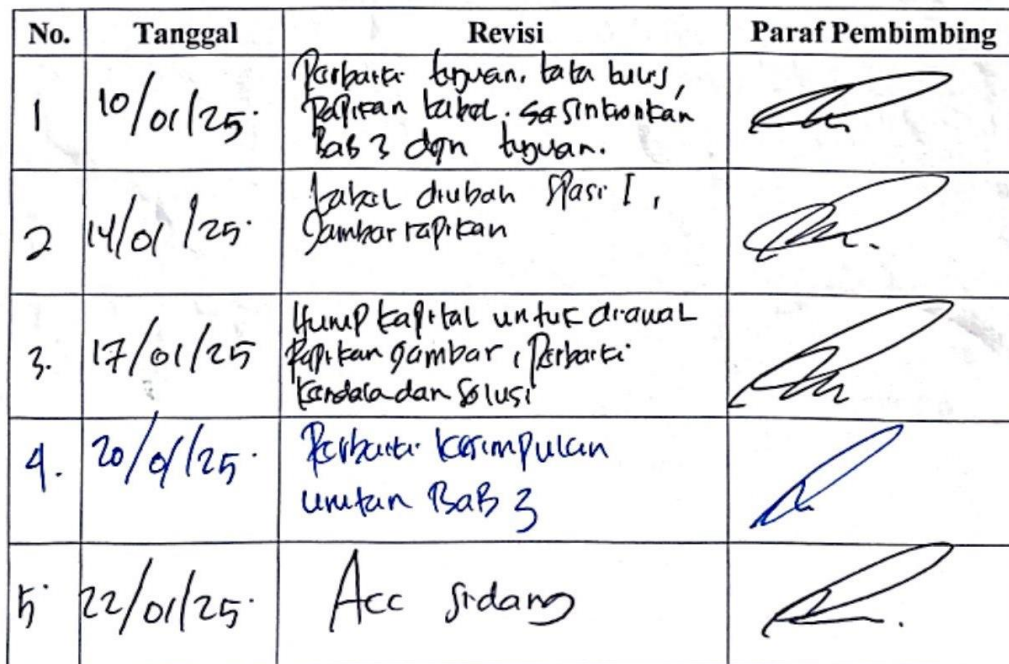 No. Tanggal Revisi Paraf Pembimbing
1 10/01/25. Perbaiki tujuan, tata tulis,
rapikan tabel. sesinkronkan
Bab 3 dgn tujuan.
2 14/01/25. tabel diubah spasi 1,
Gambar rapikan
3. 17/01/25 Huruf kapital untuk diawal
Rapikan gambar, Perbaiki
kendala dan solusi
4. 20/01/25. Perbaiki kesimpulan
urutan BAB 3
5. 22/01/25. Acc sidang